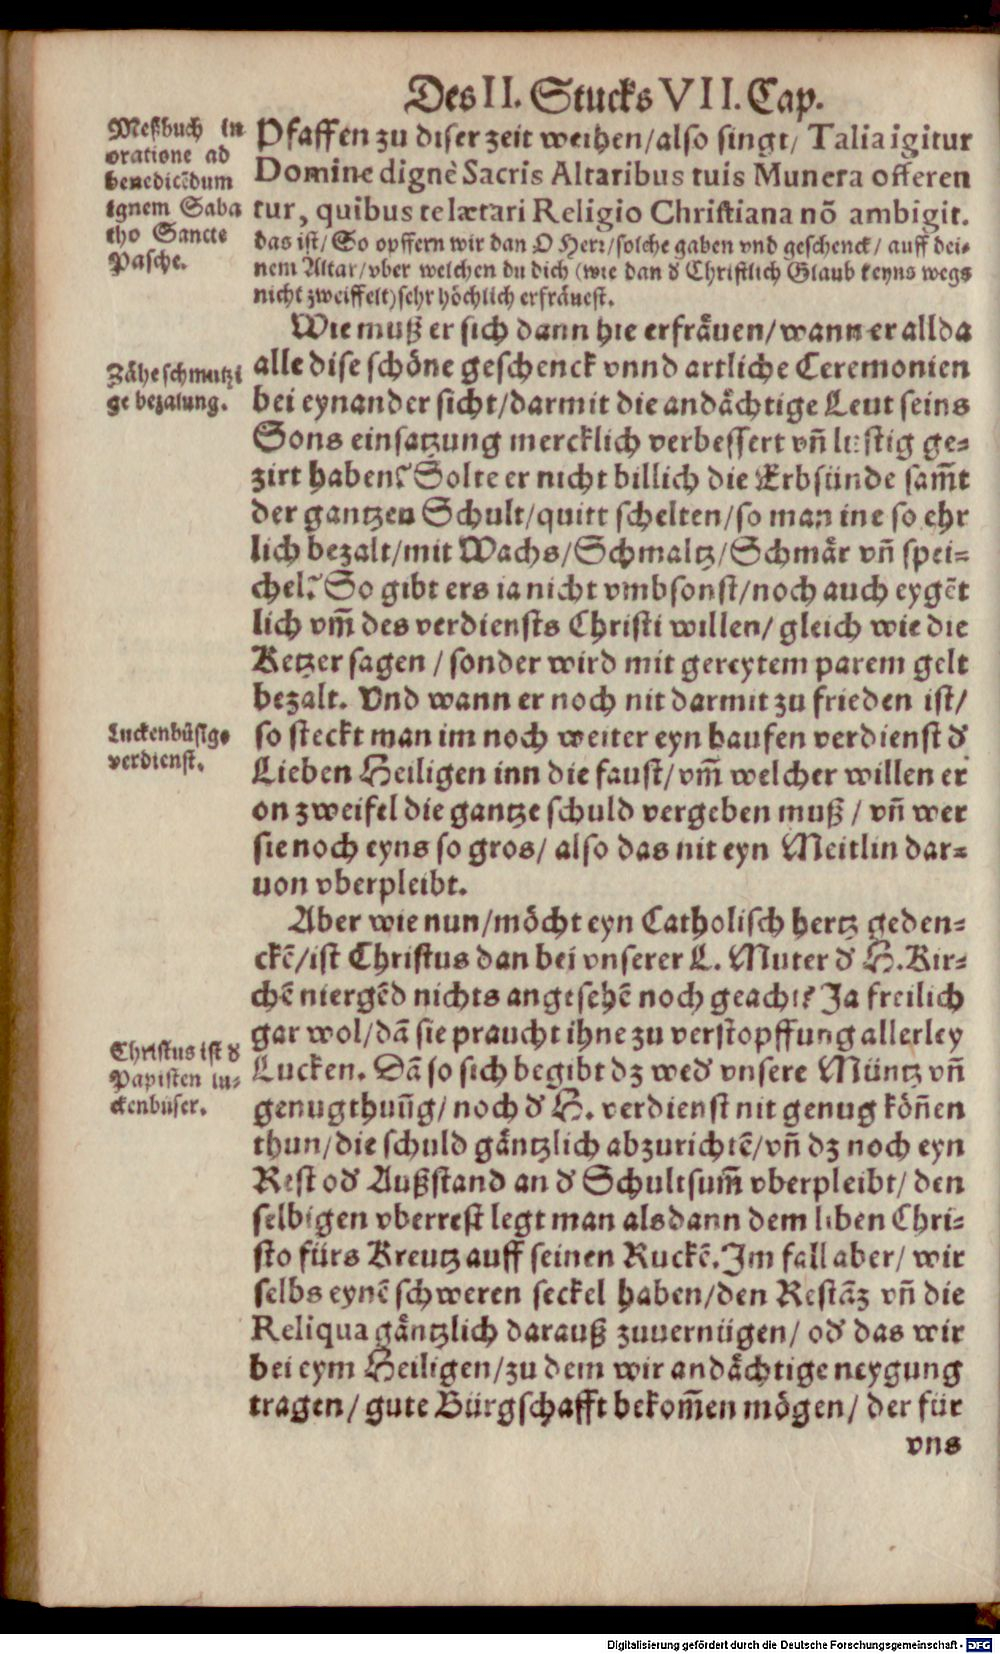 Des II. Stucks VII. Cap.
Meßbuch in
oratione ad
benedicēdum
ignem Saba
tho Sancte
Pasche.
Pfaffen zu diser zeit weihen/also singt/ Talia igitur
Domine dignè Sacris Altaribus tuis Munera offeren
tur, quibus te lætari Religio Christiana nō ambigit.
das ist/ So opffern wir dan O Herr/solche gaben vnd geschenck/ auff dei-
nem Altar/vber welchen du dich (wie dan d Christlich Glaub keyns wegs
nicht zweiffelt)sehr höchlich erfräuest.
Wie muß er sich dann hie erfräuen/wann er allda
Zähe schmutzi
ge bezalung.
alle dise schöne geschenck vnnd artliche Ceremonien
bei eynander sicht/darmit die andächtige Leut seins
Sons einsatzung mercklich verbessert vñ lustig ge-
zirt haben? Solte er nicht billich die Erbsünde sam̃t
der gantzen Schult/quitt schelten/so man ine so ehr
lich bezalt/mit Wachs/Schmaltz/Schmär vñ spei-
chel? So gibt ers ia nicht vmbsonst/noch auch eygēt
lich vm̃ des verdiensts Christi willen/ gleich wie die
Ketzer sagen / sonder wird mit gereytem parem gelt
bezalt. Vnd wann er noch nit darmit zu frieden ist/
Luckenbüsige
verdienst.
so steckt man im noch weiter eyn haufen verdienst d
Lieben Heiligen inn die faust/vm̃ welcher willen er
on zweifel die gantze schuld vergeben muß / vñ wer
sie noch eyns so gros/ also das nit eyn Meitlin dar-
uon vberpleibt.
Aber wie nun/möcht eyn Catholisch hertz geden-
ckē/ist Christus dan bei vnserer L. Muter d H. Kir-
chē niergēd nichts angesehē noch geacht? Ja freilich
gar wol/dā sie praucht ihne zu verstopffung allerley
Christus ist d
Papisten lu-
ckenbüser.
Lucken. Dā so sich begibt dz wed vnsere Müntz vñ
genugthuūg/ noch d H. verdienst nit genug köñen
thun/die schuld gäntzlich abzurichtē/vñ dz noch eyn
Rest od Außstand an d Schultsum̃ vberpleibt/ den
selbigen vberrest legt man alsdann dem liben Chri-
sto fürs Kreutz auff seinen Ruckē. Im fall aber/ wir
selbs eynē schweren seckel haben/den Restāz vñ die
Reliqua gäntzlich darauß zuuernügen/ od das wir
bei eym Heiligen/zu dem wir andächtige neygung
tragen/ gute Bürgschafft bekom̃en mögen/ der für
vns
Digitalisierung gefördert durch die Deutsche Forschungsgemeinschaft - DFG